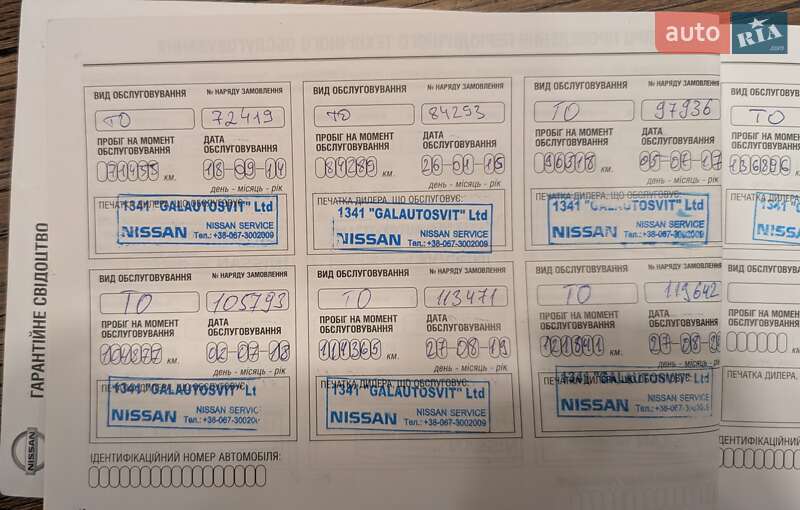 auto RIA.com
ГАРАНТІЙНЕ СВІДОЦТВО
NISSAN
ВИД ОБСЛУГОВУВАННЯ № НАРЯДУ ЗАМОВЛЕННЯ
ТО 72419
ПРОБІГ НА МОМЕНТ ОБСЛУГОВУВАННЯ ДАТА ОБСЛУГОВУВАННЯ
км. 18-09-14
день - місяць - рік
ПЕЧАТКА ДИЛЕРА, ЩО ОБСЛУГОВУЄ:
1341 "GALAUTOSVIT" Ltd
NISSAN NISSAN SERVICE
Тел.: +38-067-3002009
ВИД ОБСЛУГОВУВАННЯ № НАРЯДУ ЗАМОВЛЕННЯ
ТО 84293
ПРОБІГ НА МОМЕНТ ОБСЛУГОВУВАННЯ ДАТА ОБСЛУГОВУВАННЯ
км. 26-01-15
день - місяць - рік
ПЕЧАТКА ДИЛЕРА, ЩО ОБСЛУГОВУЄ:
1341 "GALAUTOSVIT" Ltd
NISSAN NISSAN SERVICE
Тел.: +38-067-3002009
ВИД ОБСЛУГОВУВАННЯ № НАРЯДУ ЗАМОВЛЕННЯ
ТО 97936
ПРОБІГ НА МОМЕНТ ОБСЛУГОВУВАННЯ ДАТА ОБСЛУГОВУВАННЯ
096318 км. 05-07-17
день - місяць - рік
ПЕЧАТКА ДИЛЕРА, ЩО ОБСЛУГОВУЄ:
1341 "GALAUTOSVIT" Ltd
NISSAN NISSAN SERVICE
Тел.: +38-067-3002009
ВИД ОБСЛУГОВУВАННЯ
ТО
ПРОБІГ НА МОМЕНТ
ОБСЛУГОВУВАННЯ
136896 км.
ПЕЧАТКА ДИЛЕРА,
ВИД ОБСЛУГОВУВАННЯ № НАРЯДУ ЗАМОВЛЕННЯ
ТО 105793
ПРОБІГ НА МОМЕНТ ОБСЛУГОВУВАННЯ ДАТА ОБСЛУГОВУВАННЯ
104277 км. 02-07-18
день - місяць - рік
ПЕЧАТКА ДИЛЕРА, ЩО ОБСЛУГОВУЄ:
1341 "GALAUTOSVIT" Lt
NISSAN NISSAN SERVIC
Тел.: +38-067-30020
ВИД ОБСЛУГОВУВАННЯ № НАРЯДУ ЗАМОВЛЕННЯ
ТО 113471
ПРОБІГ НА МОМЕНТ ОБСЛУГОВУВАННЯ ДАТА ОБСЛУГОВУВАННЯ
111365 км. 27-08-19
день - місяць - рік
ПЕЧАТКА ДИЛЕРА, ЩО ОБСЛУГОВУЄ:
1341 "GALAUTOSVIT" Ltd
NISSAN NISSAN SERVICE
Тел.: +38-067-3002009
ВИД ОБСЛУГОВУВАННЯ № НАРЯДУ ЗАМОВЛЕННЯ
ТО 119642
ПРОБІГ НА МОМЕНТ ОБСЛУГОВУВАННЯ ДАТА ОБСЛУГОВУВАННЯ
121341 км.
день - місяць - рік
ПЕЧАТКА ДИЛЕРА, ЩО ОБСЛУГОВУЄ:
1341 "GALAUTOSVIT" Ltd
NISSAN NISSAN SERVICE
ВИД ОБСЛУГОВУВАННЯ
ПРОБІГ НА МОМЕНТ
ОБСЛУГОВУВАННЯ
км.
ПЕЧАТКА ДИЛЕРА,
ІДЕНТИФІКАЦІЙНИЙ НОМЕР АВТОМОБІЛЯ: